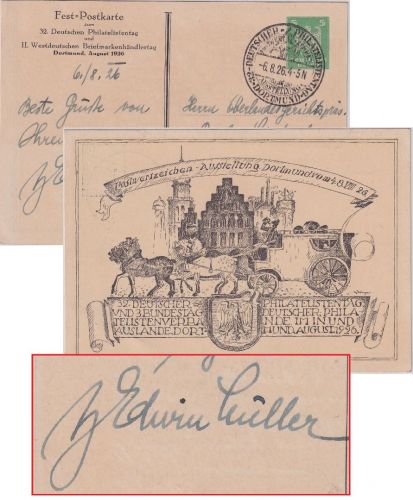 Fest-Postkarte
zum
32. Deutschen Philatelistentag
und
II. Westdeutschen Briefmarkenhändlertag
Dortmund, August 1926
6/8. 26
Beste Grüße von
Ihrem
Herrn Oberlandesgerichtspräs.
DEUTSCHER PHILATELISTENTAG
-6.8.26.4-5N
DORTMUND
5
Postwertzeichen-Ausstellung Dortmund vom 4-8. VIII 26.
32. DEUTSCHER PHILATELISTENTAG
UND 3. BUNDESTAG DEUTSCHER PHILA
TELISTENVERBÄNDE IM IN UND
AUSLANDE. DORTMUND. AUGUST. 1926.
Edwin Müller